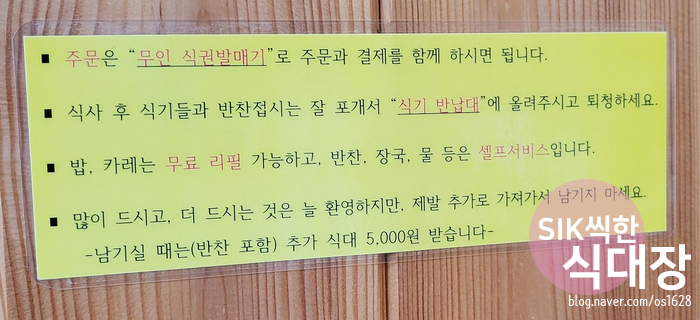 ▪ 주문은 “무인 식권발매기”로 주문과 결제를 함께 하시면 됩니다.
▪ 식사 후 식기들과 반찬접시는 잘 포개서 “식기 반납대”에 올려주시고 퇴청하세요.
▪ 밥, 카레는 무료 리필 가능하고, 반찬, 장국, 물 등은 셀프서비스입니다.
▪ 많이 드시고, 더 드시는 것은 늘 환영하지만, 제발 추가로 가져가서 남기지 마세요.
-남기실 때는(반찬 포함) 추가 식대 5,000원 받습니다-
SIK씩한
식대장
blog.naver.com/os1628